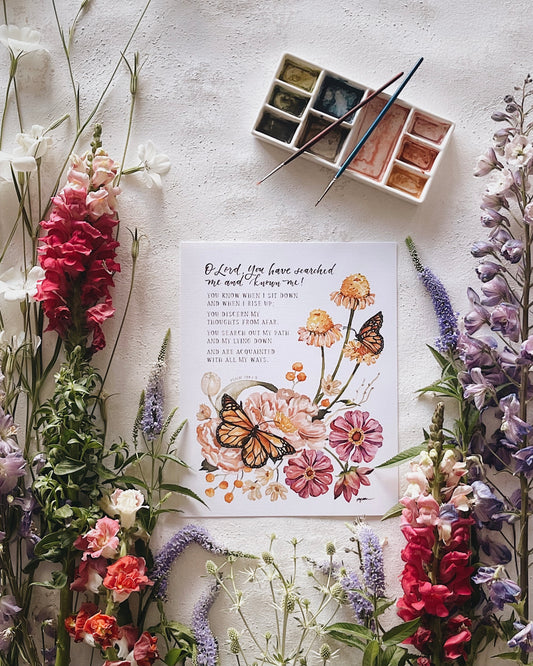 O Lord, you have searched
me and known me!
YOU KNOW WHEN I SIT DOWN
AND WHEN I RISE UP;
YOU DISCERN MY
THOUGHTS FROM AFAR.
YOU SEARCH OUT MY PATH
AND MY LYING DOWN
AND ARE ACQUAINTED
WITH ALL MY WAYS.